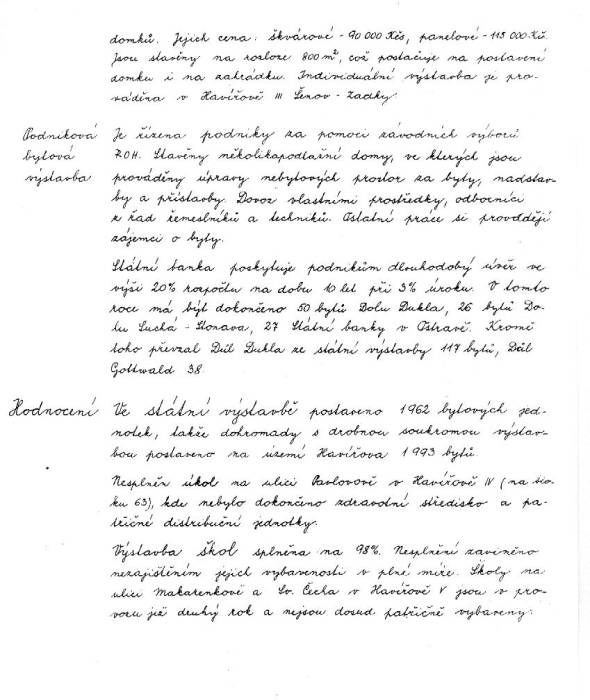 domků. Jejich cena: škvárové - 90 000 Kčs, panelové - 115 000 Kčs.
Jsou stavěny na rozloze 800 m², což postačuje na postavení
domku i na zahrádku. Individuální výstavba je pro-
váděna v Havířově III Šenov - Zadky.
Podniková bytová výstavba
Je řízena podniky za pomoci závodních výborů
ROH. Stavěny několikapodlažní domy, ve kterých jsou
prováděny úpravy nebytových prostor za byty, nadstav-
by a přístavby. Dovoz vlastními prostředky, odborníci
z řad řemeslníků a techniků. Ostatní práce si provádějí
zájemci o byty.
Státní banka poskytuje podnikům dlouhodobý úvěr ve
výši 20% rozpočtu na dobu 10 let při 3% úroku. V tomto
roce má být dokončeno 50 bytů Dolu Dukla, 26 bytů Do-
lu Suchá - Stonava, 27 Státní banky v Ostravě. Kromě
toho převzal Důl Dukla ze státní výstavby 117 bytů, Důl
Gottwald 38.
Hodnocení
Ve státní výstavbě postaveno 1962 bytových jed-
notek, takže dohromady s drobnou soukromou výstav-
bou postaveno na území Havířova 1993 bytů.
Nesplněn úkol na ulici Pavlovově v Havířově IV (na blo-
ku 63), kde nebylo dokončeno zdravotní středisko a pa-
třičné distribuční jednotky.
Výstavba škol splněna na 98%. Nesplnění zaviněno
nezajištěním jejich vybavenosti v plné míře. Školy na
ulici Makarenkově a Sv. Čecha v Havířově V jsou v pro-
vozu již druhý rok a nejsou dosud patřičně vybaveny.